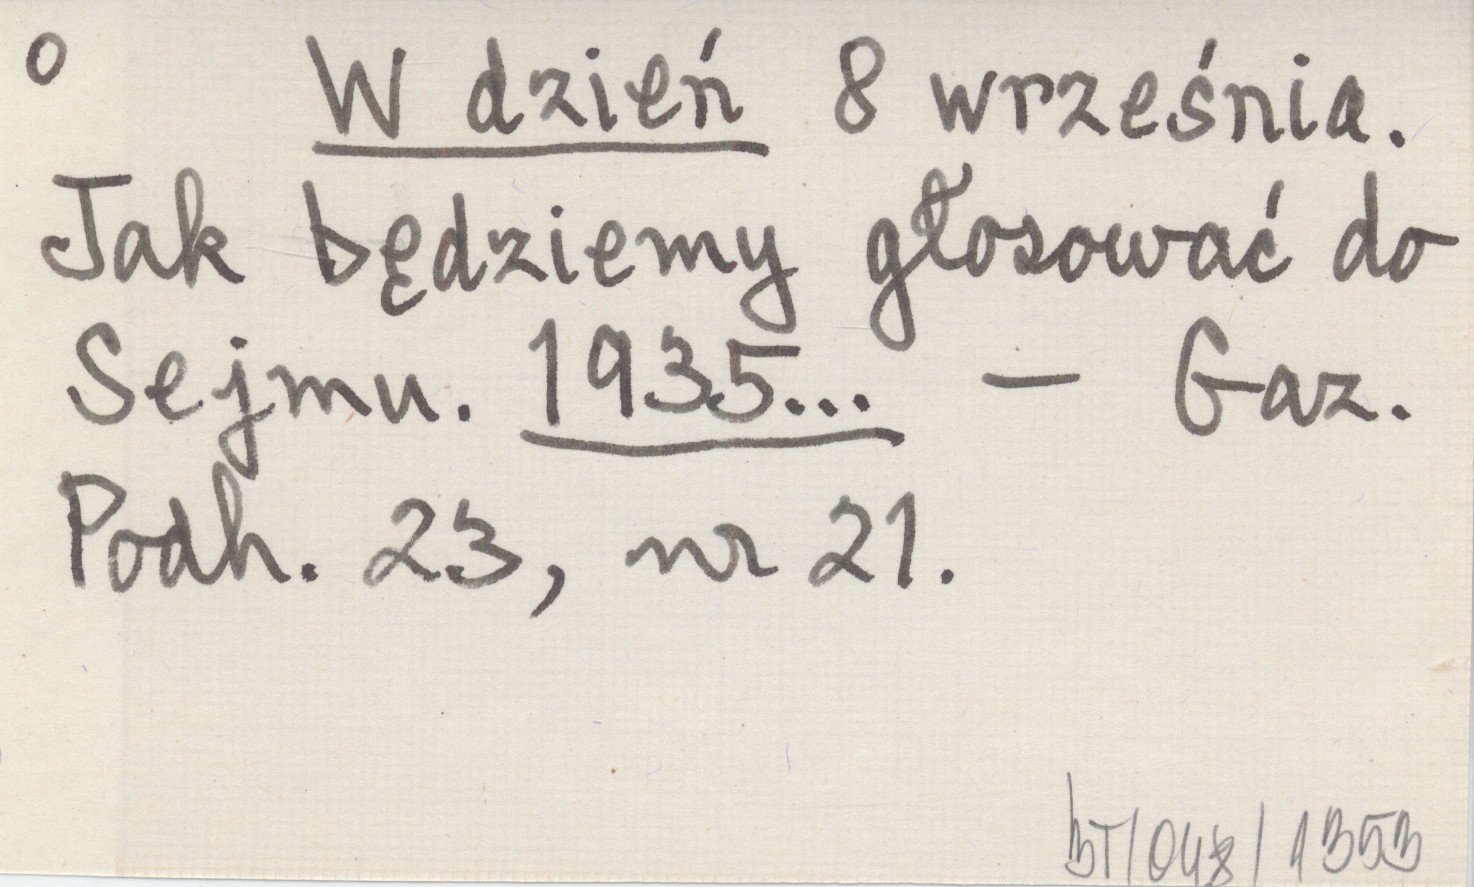 o W dzień 8 września.
Jak będziemy głosować do
Sejmu. 1935... — Gaz.
Podh. 23, nr 21.
bT/048/1353